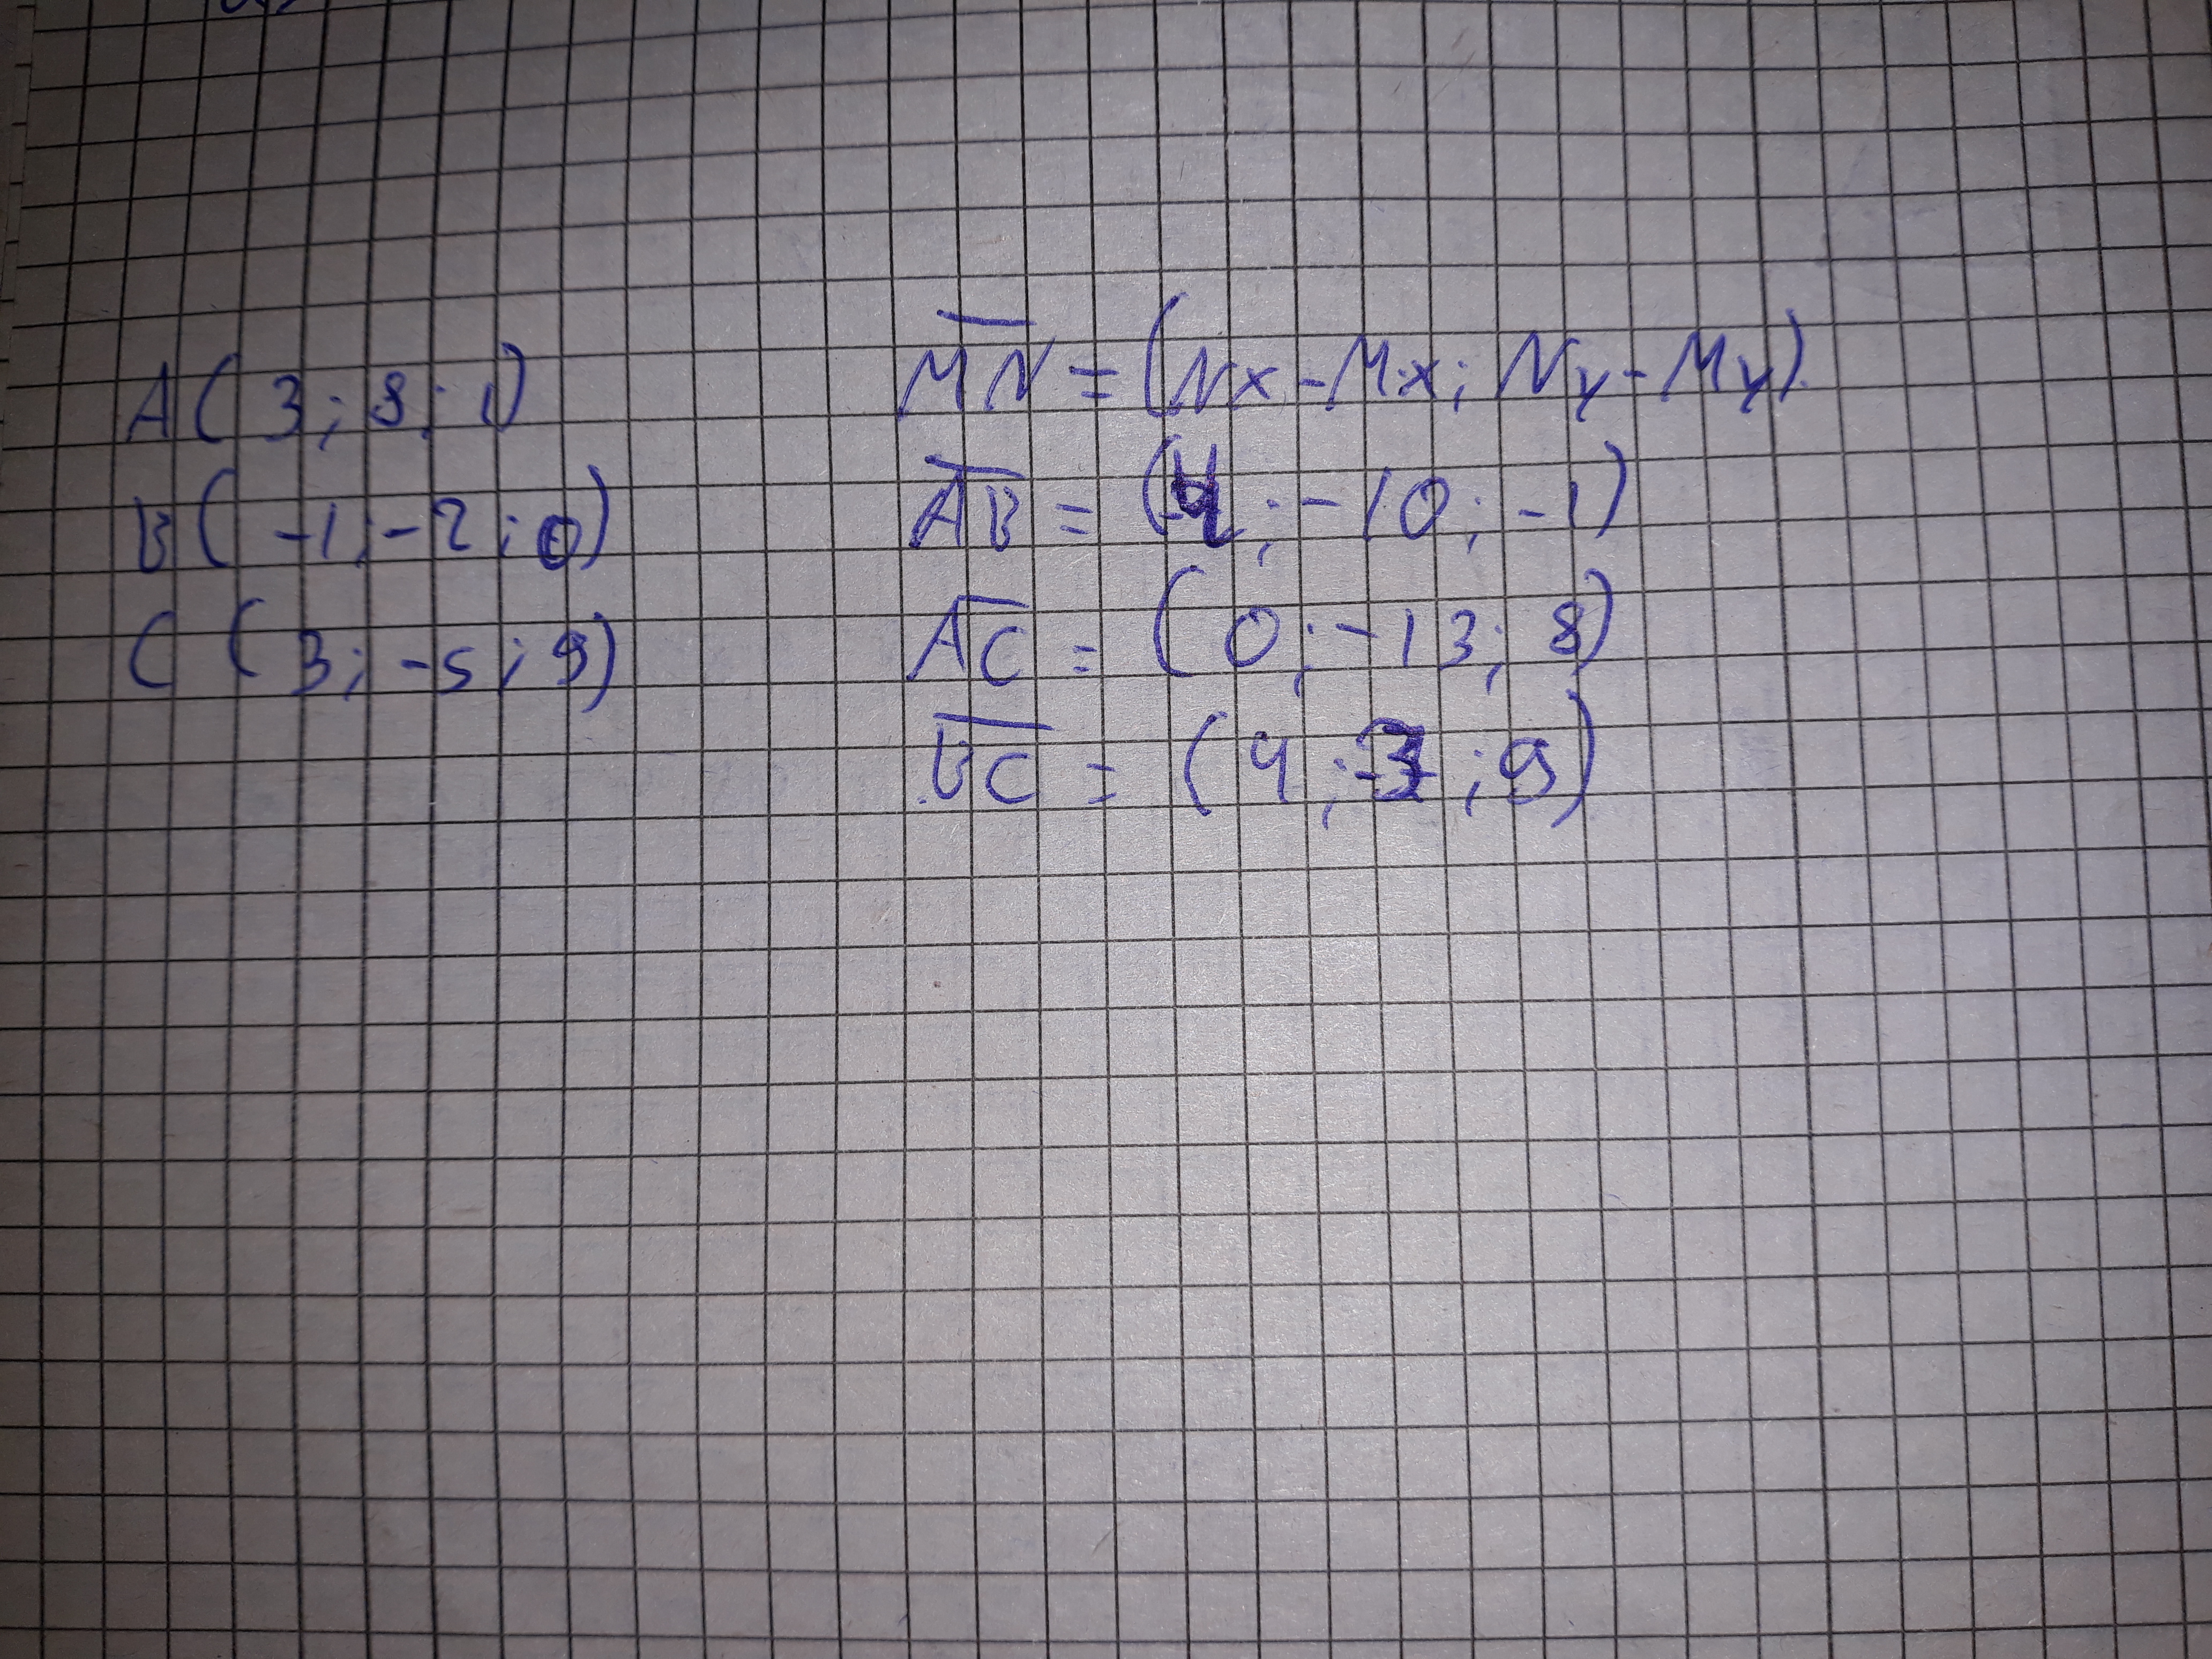 A(3; 8; 1)
B(-1; -2; 0)
C(3; -5; 9)
MN = (Nx - Mx; Ny - My)
AB = (-4; -10; -1)
AC = (0; -13; 8)
BC = (4; -3; 9)